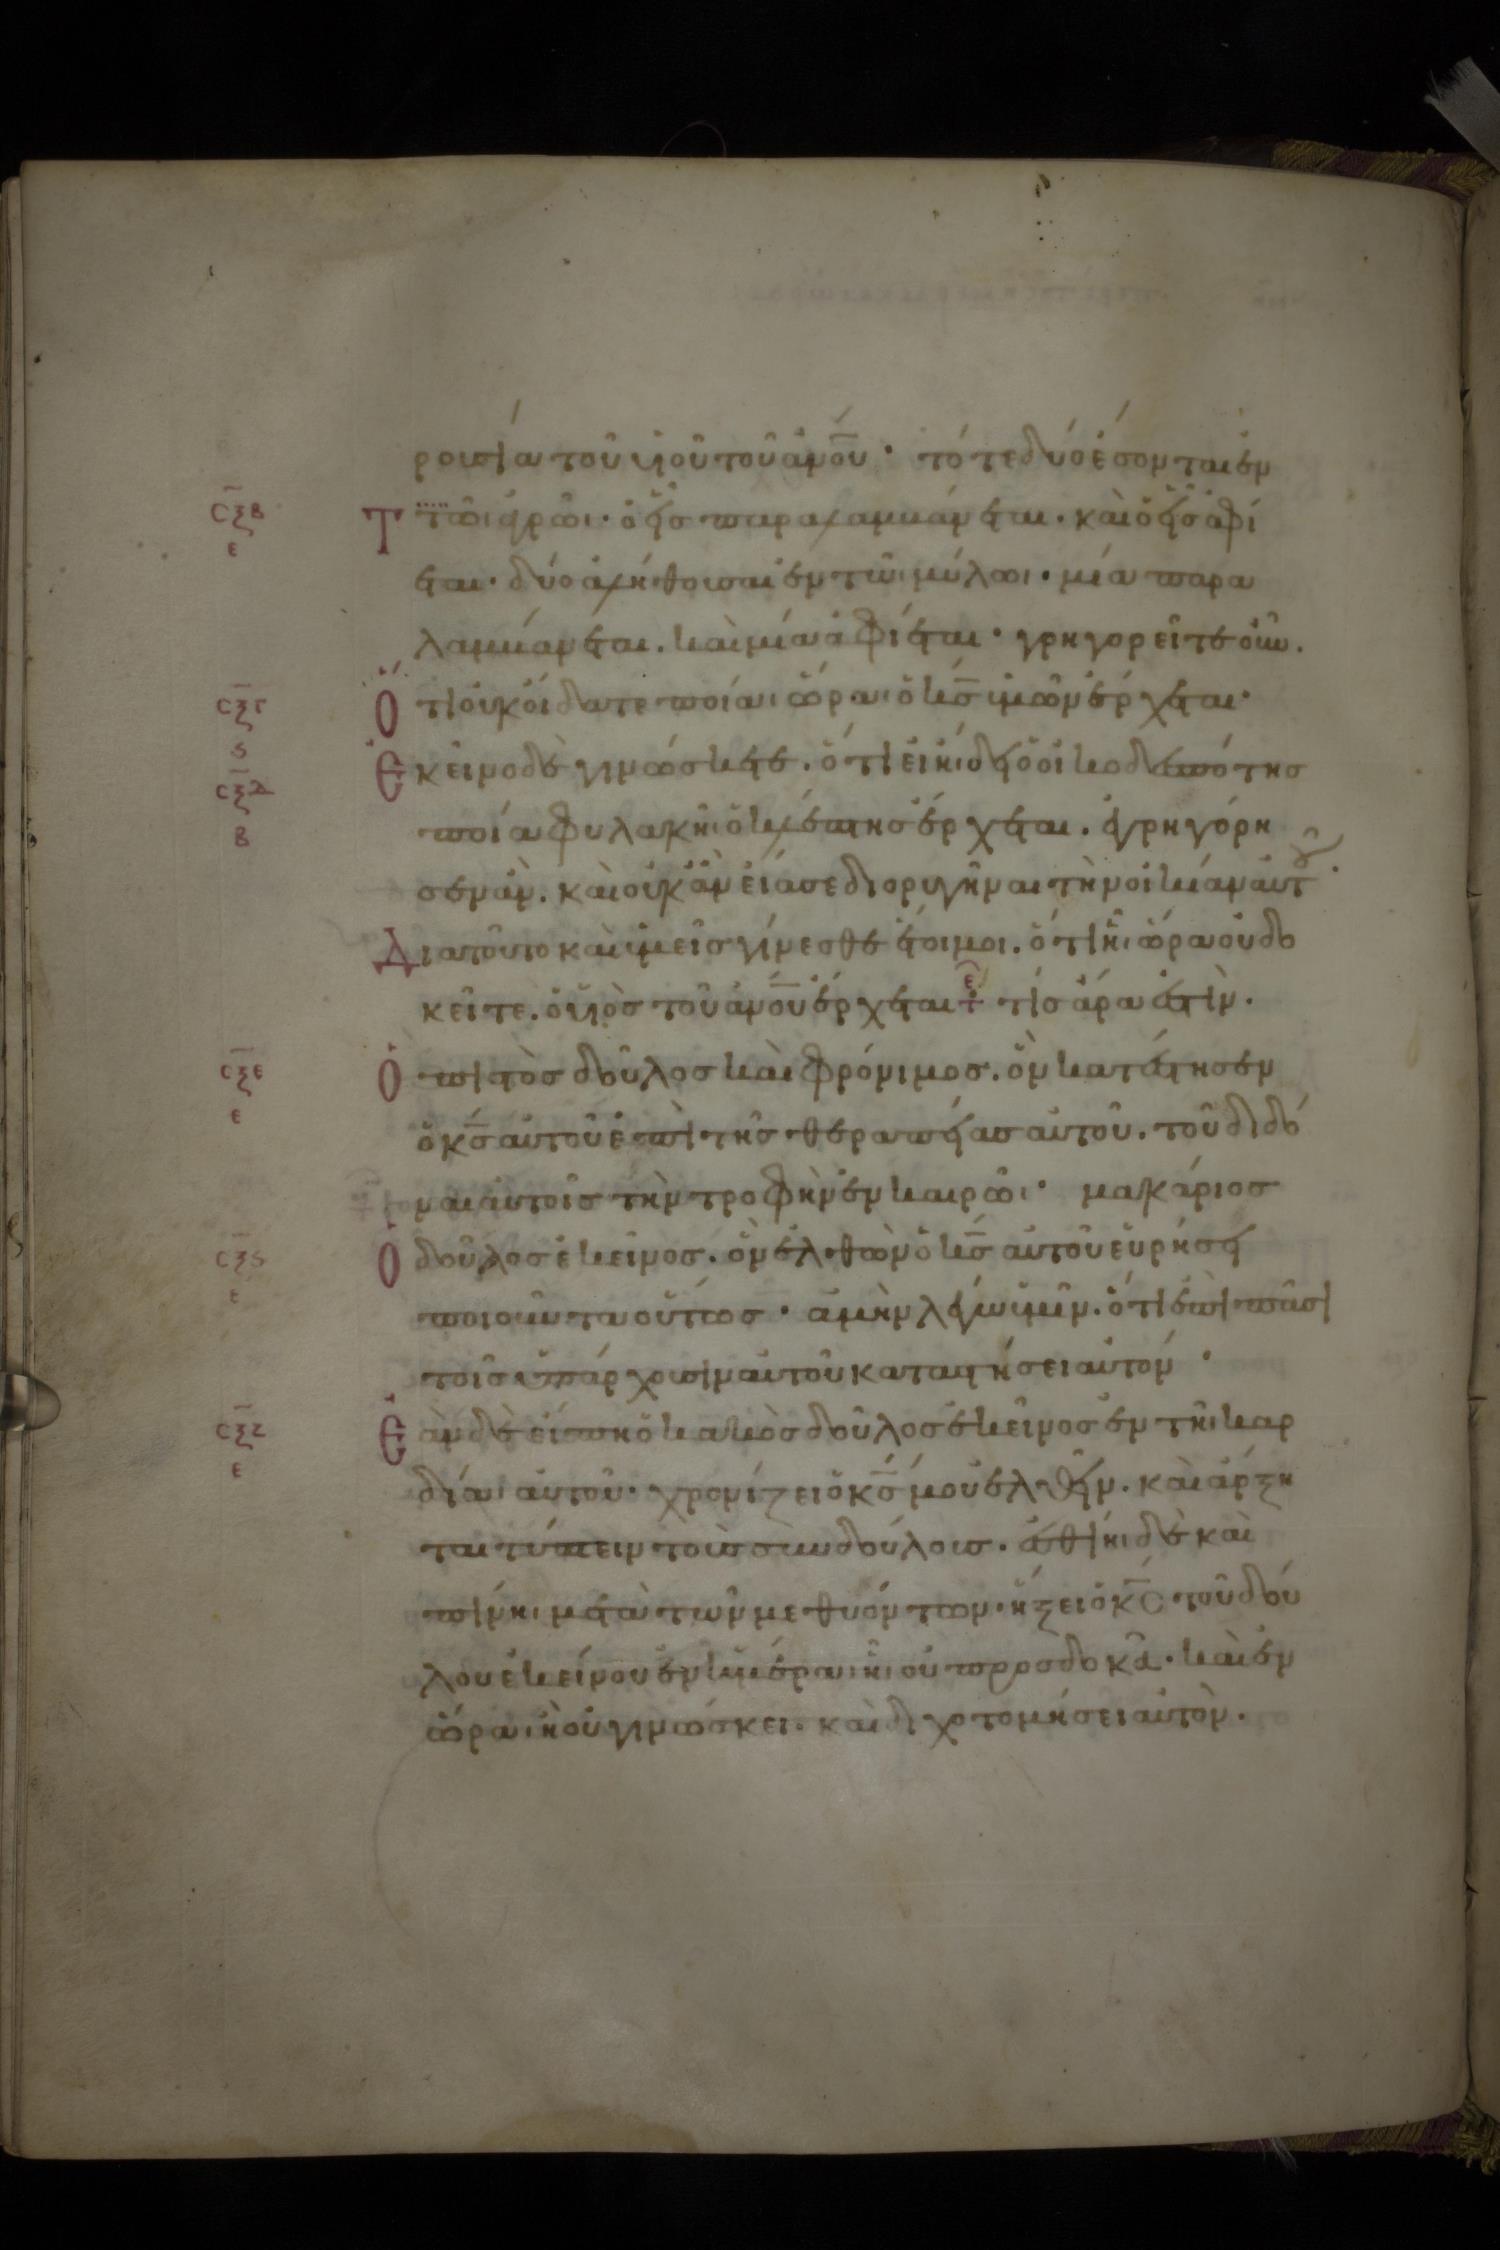 ρουσία τοῦ υἱοῦ τοῦ ἀν̅ου· τότε δύο ἔσονται ἐν
σ̅ξβ ε Τ τῶι ἀγρῶι· ὁ εἷς παραλαμβάνεται. καὶ ὁ εἷς ἀφί
εται· δύο ἀλήθουσαι ἐν τῶι μύλωι· μία παρα
λαμβάνεται. καὶ μία ἀφίεται· γρηγορεῖτε οὖν.
σ̅ξγ ς Ὅτι οὐκ οἴδατε ποίαι ὥραι ὁ κ̅ς ὑμῶν ἔρχεται·
σ̅ξδ β Ἐκεῖνο δὲ γινώσκετε. ὅτι εἰ ἤιδει ὁ οἰκοδεσπότης
ποία φυλακῆι ὁ κλέπτης ἔρχεται. ἐγρηγόρη
σεν ἄν. καὶ οὐκ ἂν εἴασε διορυγῆναι τὴν οἰκίαν αὐτοῦ.
Διατοῦτο καὶ ὑμεῖς γίνεσθε ἕτοιμοι. ὅτι ἧι ὥραι οὐ δο
κεῖτε. ὁ υἱὸς τοῦ ἀν̅ου ἔρχεται ε + τίς ἄρα ἐστὶν.
σ̅ξε ε Ὁ πιστὸς δοῦλος καὶ φρόνιμος. ὃν κατέστησεν
ὁ κ̅ς αὐτοῦ ἐπὶ τῆς θεραπείας αὐτοῦ. τοῦ διδό
ναι αὐτοῖς τὴν τροφὴν ἐν καιρῶι· μακάριος
σ̅ξς ε Ὁ δοῦλος ἐκεῖνος. ὃν ἐλθὼν ὁ κ̅ς αὐτοῦ εὑρήσει
ποιοῦντα οὕτως· ἀμὴν λέγω ὑμῖν. ὅτι ἐπὶ πᾶσι
τοῖς ὑπάρχουσιν αὐτοῦ καταστήσει αὐτόν·
σ̅ξζ ε Ἐὰν δὲ εἴπη ὁ κακὸς δοῦλος ἐκεῖνος ἐν τῆι καρ
δίαι αὐτοῦ· χρονίζει ὁ κ̅ς μου ἐλθεῖν. καὶ ἄρξη
ται τύπτειν τοὺς συνδούλους. ἐσθίηι δὲ καὶ
πίνηι μετὰ τῶν μεθυόντων· ἥξει ὁ κ̅ς τοῦ δού
λου ἐκείνου ἐν ἡμέραι ἧι οὐ προσδοκᾶ· καὶ ἐν
ὥραι ἧ οὐ γινώσκει· καὶ διχοτομήσει αὐτὸν.